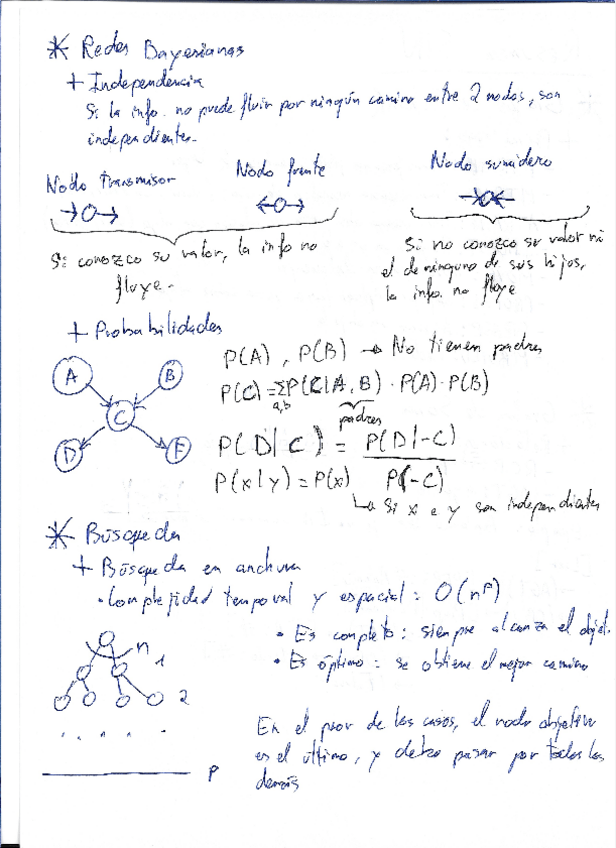 * Redes Bayesianas
+ Independencia
Si la info. no puede fluir por ningún camino entre 2 nodos, son
independientes.
Nodo transmisor Nodo fuente Nodo sumidero
→O→ ←O→ →O←
Si conozco su valor, la info no
fluye.
Si no conozco su valor ni
el de ninguno de sus hijos,
la info. no fluye
+ Probabilidades
A B C D F
P(A), P(B) → No tienen padres
P(C) = Σ P(C|A,B) · P(A) · P(B)
a,b
padres
P(D|C) = P(D|-C)
P(-C)
P(x|y) = P(x)
↳ Si x e y son independientes
* Búsqueda
+ Búsqueda en anchura
· Complejidad temporal y espacial: O(nᵖ)
· Es completo: siempre alcanza el objet.
· Es óptimo: se obtiene el mejor camino
n
1
2
p
En el peor de los casos, el nodo objetivo
es el último, y debo pasar por todos los
demás